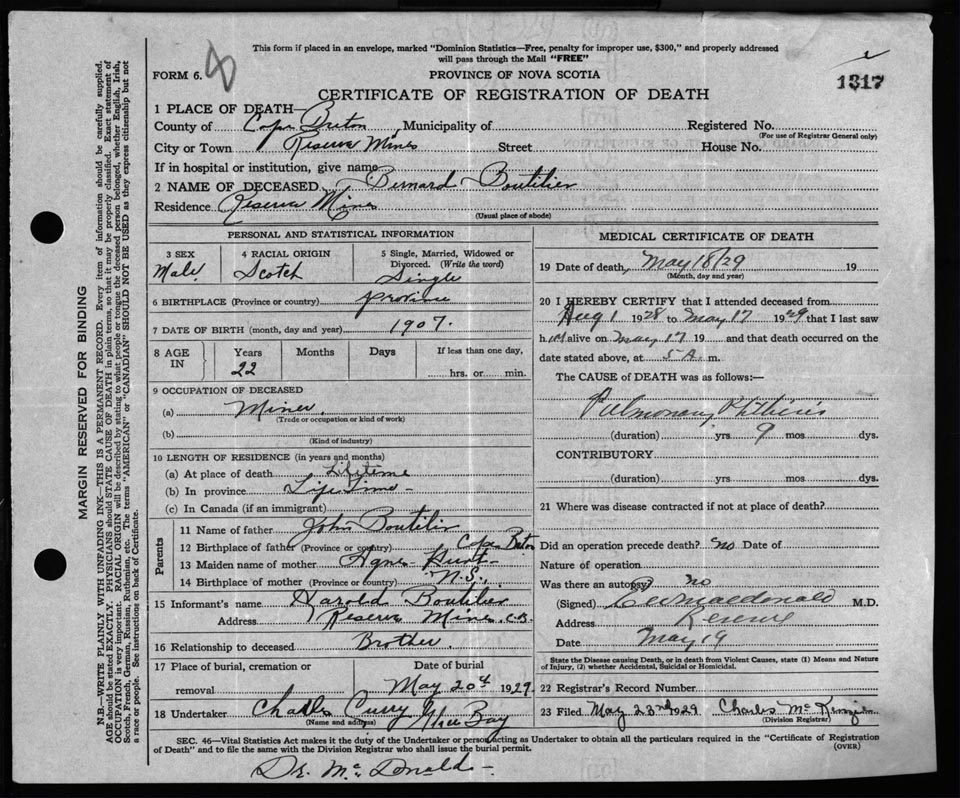 This form if placed in an envelope, marked "Dominion Statistics—Free, penalty for improper use, $300," and properly addressed
will pass through the Mail "FREE"
FORM 6. 8
PROVINCE OF NOVA SCOTIA
1317
CERTIFICATE OF REGISTRATION OF DEATH
1 PLACE OF DEATH—
County of Cape Breton, Municipality of Registered No.
(For use of Registrar General only)
City or Town Reserve Mines Street House No.
If in hospital or institution, give name
2 NAME OF DECEASED Bernard Boutilier
Residence Reserve Mines
(Usual place of abode)
PERSONAL AND STATISTICAL INFORMATION
3 SEX 4 RACIAL ORIGIN 5 Single, Married, Widowed or
Divorced. (Write the word)
Male Scotch Single
6 BIRTHPLACE (Province or country) Province
7 DATE OF BIRTH (month, day and year) 1907.
8 AGE IN Years Months Days If less than one day,
22 hrs. or min.
9 OCCUPATION OF DECEASED
(a) Miner.
(Trade or occupation or kind of work)
(b)
(Kind of industry)
10 LENGTH OF RESIDENCE (in years and months)
(a) At place of death Lifetime
(b) In province Life Time -
(c) In Canada (if an immigrant)
Parents
11 Name of father John Boutilier
12 Birthplace of father (Province or country) Cape Breton
13 Maiden name of mother Agnes
14 Birthplace of mother (Province or country) N.S.
15 Informant's name Harold Boutilier
Address Reserve Mines, C.B.
16 Relationship to deceased Brother.
17 Place of burial, cremation or Date of burial
removal May 20th 1929.
18 Undertaker Charles Curry Glace Bay
(Name and address)
MEDICAL CERTIFICATE OF DEATH
19 Date of death, May 18/29 19
(Month, day and year)
20 I HEREBY CERTIFY that I attended deceased from
Aug 1 1928 to May 17 1929 that I last saw
h im alive on May 17 19 and that death occurred on the
date stated above, at 5 A. m.
The CAUSE of DEATH was as follows:—
Pulmonary Phthisis
(duration) yrs 9 mos dys.
CONTRIBUTORY
(duration) yrs mos dys.
21 Where was disease contracted if not at place of death?
Did an operation precede death? no Date of
Nature of operation
Was there an autopsy? no
(Signed) Macdonald M.D.
Address Reserve
Date May 19
State the Disease causing Death, or in death from Violent Causes, state (1) Means and Nature
of Injury, (2) whether Accidental, Suicidal or Homicidal.
22 Registrar's Record Number
23 Filed May 23rd 1929 Charles McKenzie
(Division Registrar)
SEC. 46—Vital Statistics Act makes it the duty of the Undertaker or person acting as Undertaker to obtain all the particulars required in the "Certificate of Registration
of Death" and to file the same with the Division Registrar who shall issue the burial permit.
(OVER)
Dr. McDonald -
MARGIN RESERVED FOR BINDING
N.B.—WRITE PLAINLY WITH UNFADING INK—THIS IS A PERMANENT RECORD. Every item of information should be carefully supplied.
AGE should be stated EXACTLY. PHYSICIANS should STATE CAUSE OF DEATH in plain terms, so that it may be properly classified. Exact statement of
OCCUPATION is very important. RACIAL ORIGIN will be described by stating to what people or tongue the deceased person belonged, whether English, Irish,
Scotch, French, German, Russian, Ruthenian, etc. The terms "AMERICAN" or "CANADIAN" SHOULD NOT BE USED as they express citizenship but not
a race or people. See instructions on back of Certificate.